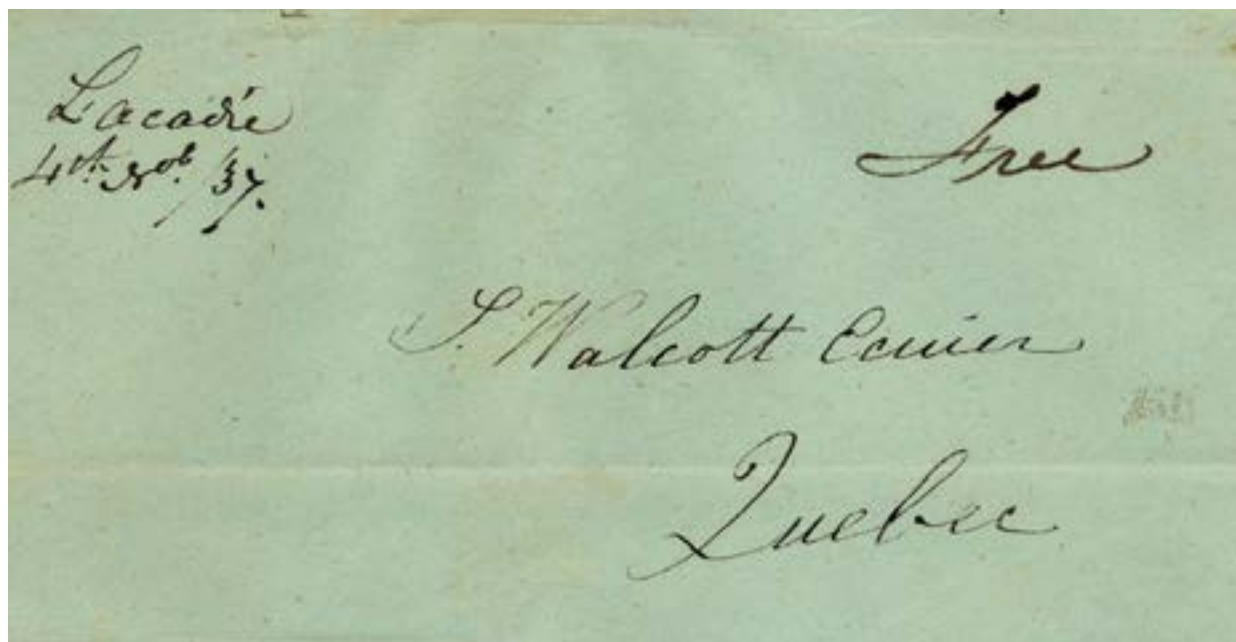 Lacadie
4th Nov. /37.
Free
S. Walcott Ecuier
Quebec